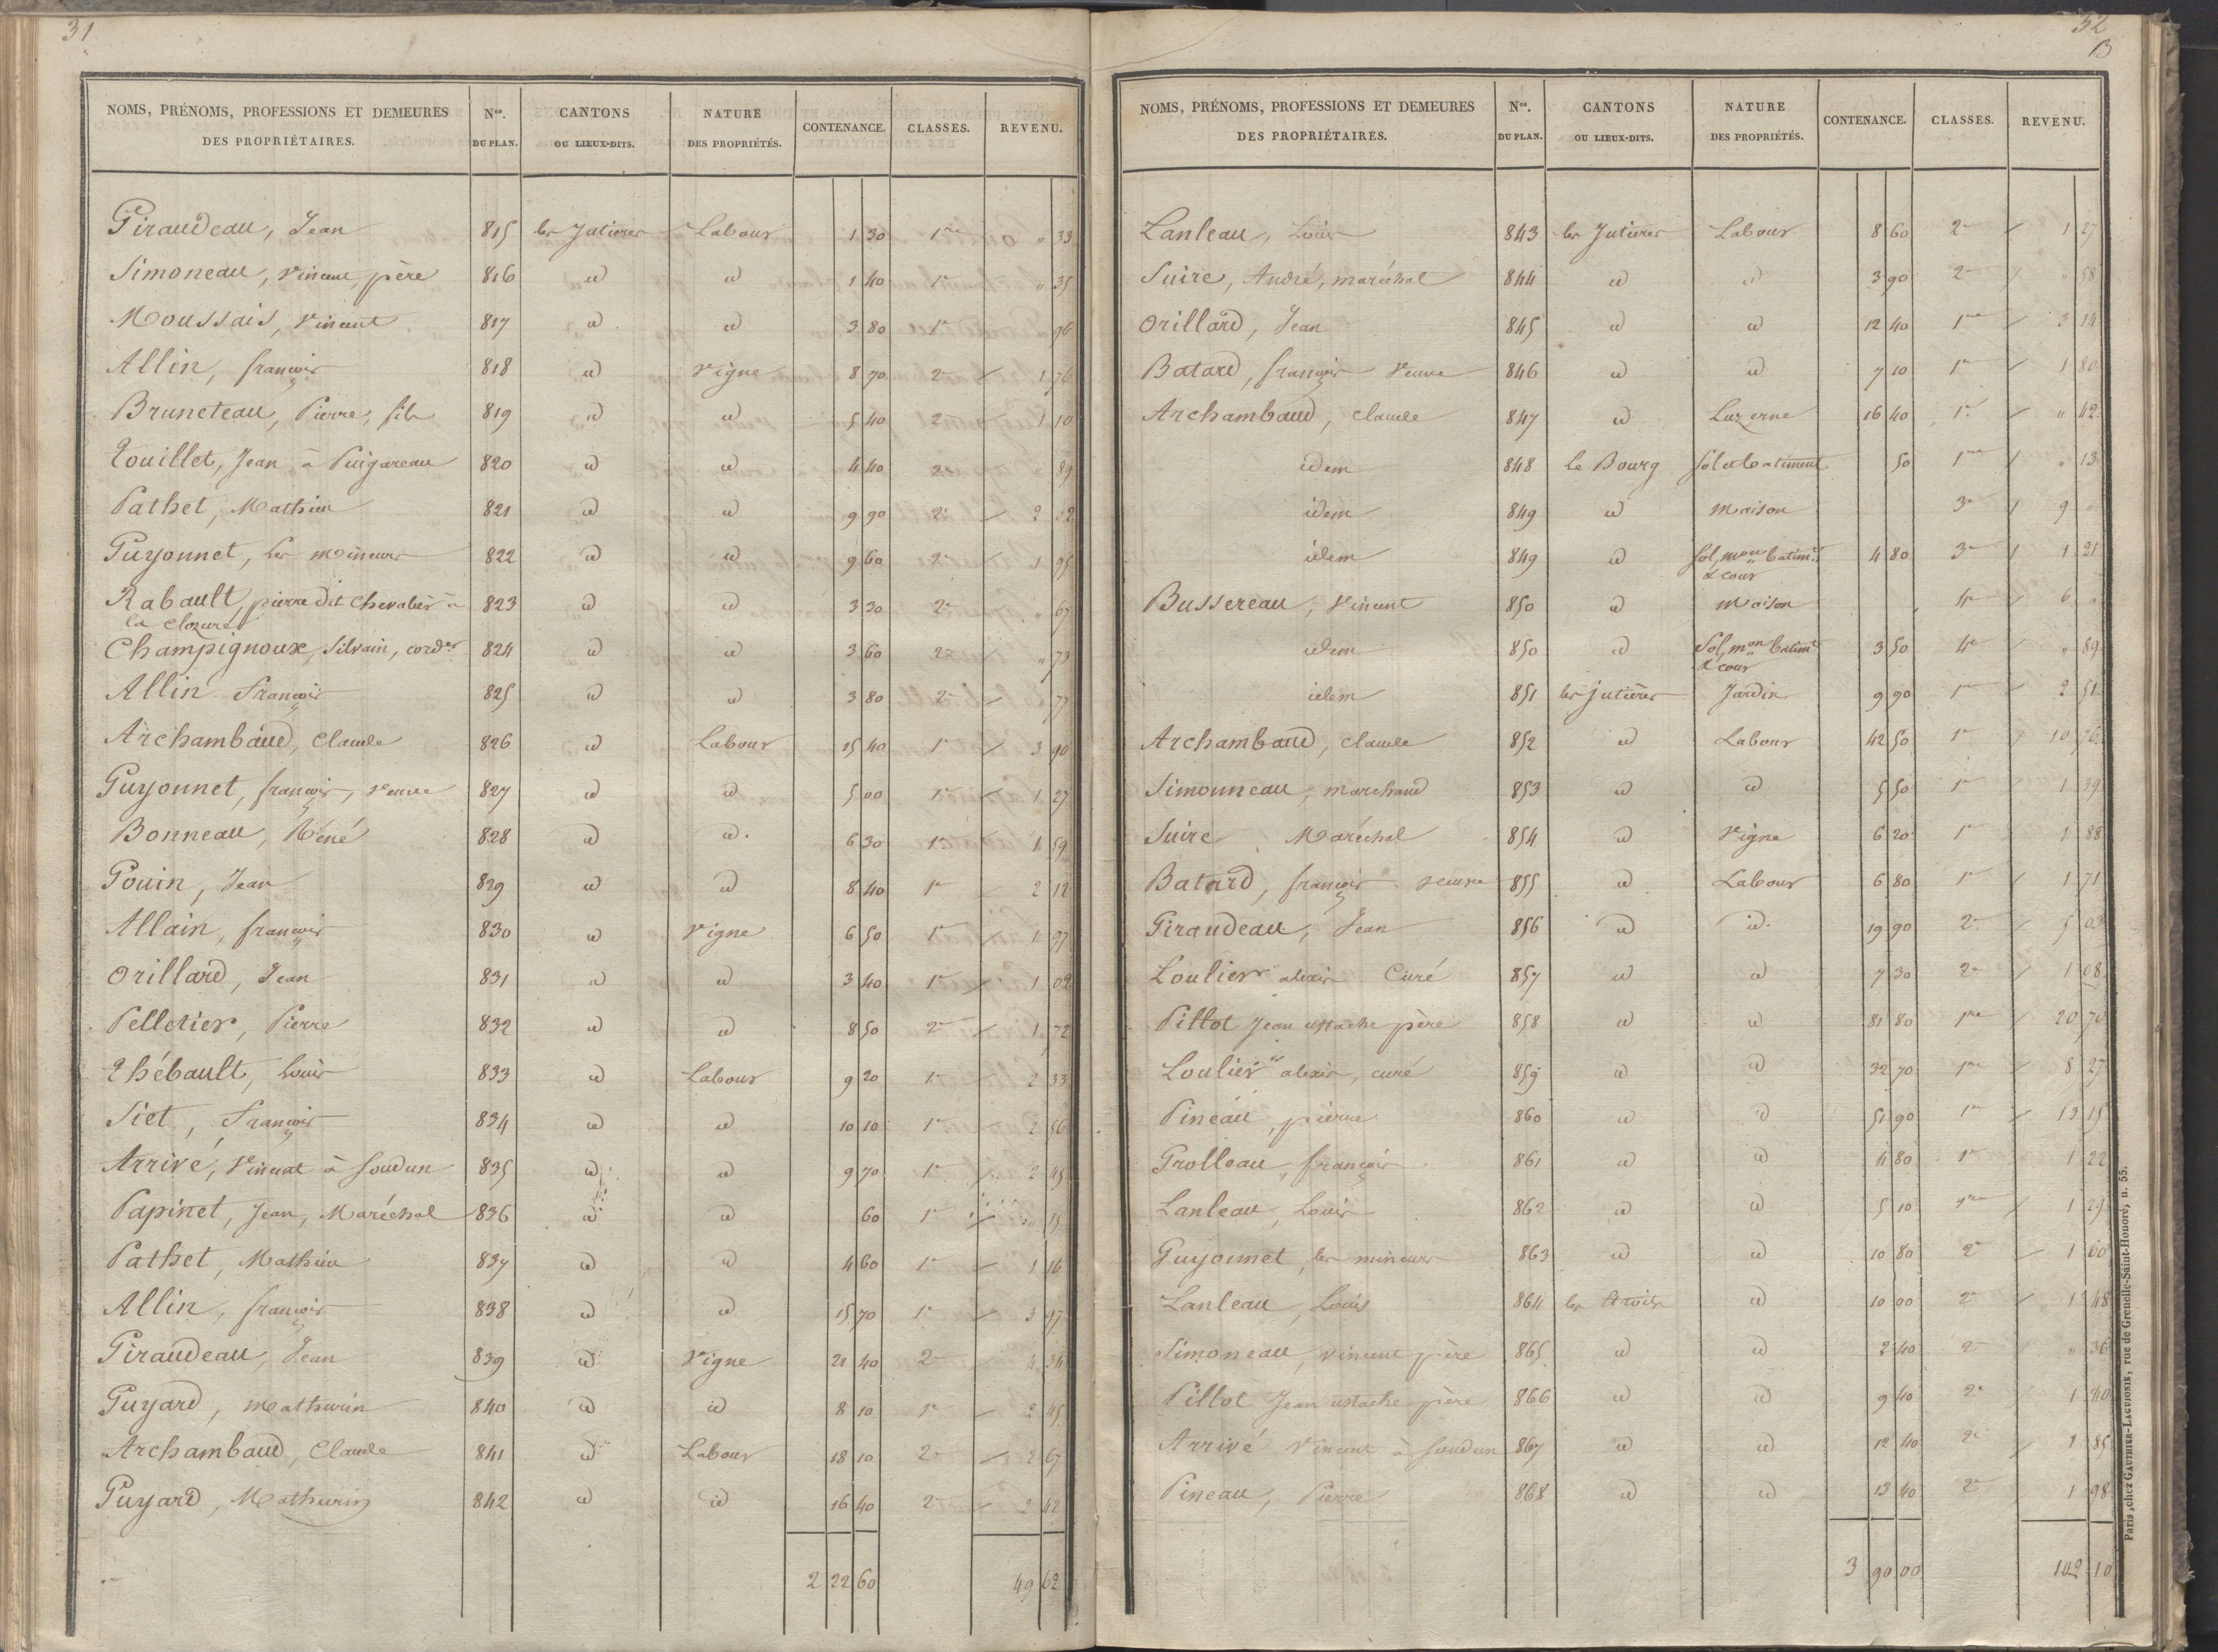 31
NOMS, PRÉNOMS, PROFESSIONS ET DEMEURES DES PROPRIÉTAIRES. Nos. DU PLAN. CANTONS OU LIEUX-DITS. NATURE DES PROPRIÉTÉS. CONTENANCE. CLASSES. REVENU.
Giraudeau, Jean 815 les Jutieres Labour 1 30 1re " 33
Simoneau, Vincent, père 816 id id 1 40 1re " 35
Moussais, Vincent 817 id id 3 80 1re " 96
Allin, françois 818 id Vigne 8 70 2e 1 76
Bruneteau, Pierre, fils 819 id id 5 40 2e 1 10
Touillet, Jean à Puigareau 820 id id 4 40 2e " 89
Pathet, Mathieu 821 id id 9 90 2e 2 02
Guyonnet, Les mineurs 822 id id 9 60 2e 1 95
Rabault, pierre dit Chevalier à la Clozure 823 id id 3 30 2e " 67
Champignoux, Silvain, corder 824 id id 3 60 2e " 73
Allin François 825 id id 3 80 2e 77
Archambaud, Claude 826 id Labour 15 40 1re 3 90
Guyonnet, françois, veuve 827 id id 5 00 1re 1 27
Bonneau, Réné 828 id id. 6 30 1re 1 59
Gouin, Jean 829 id id 8 40 1re 2 12
Allain, françois 830 id Vigne 6 50 1re 1 97
Orillard, Jean 831 id id 3 40 1re 1 02
Pelletier, Pierre 832 id id 8 50 2e 1 72
Thébault, Louis 833 id Labour 9 20 1re 2 33
Siet, François 834 id id 10 10 1re 2 56
Arrivé, Vincent à Soudun 835 id id 9 70 1re 2 45
Papinet, Jean, Maréchal 836 id id 60 1re " 15
Pathet, Mathieu 837 id id 4 60 1re 1 16
Allin, françois 838 id id 15 70 1re 3 97
Giraudeau, Jean 839 id Vigne 21 40 2e 4 34
Guyard, mathurin 840 id id 8 10 1re 2 45
Archambaud, Claude 841 id Labour 18 10 2e 2 67
Guyard, Mathurin 842 id id 16 40 2e 2 42
2 22 60 49 62
32
B
NOMS, PRÉNOMS, PROFESSIONS ET DEMEURES DES PROPRIÉTAIRES. Nos. DU PLAN. CANTONS OU LIEUX-DITS. NATURE DES PROPRIÉTÉS. CONTENANCE. CLASSES. REVENU.
Lanleau, Louis 843 les Jutieres Labour 8 60 2e 1 27
Suire, André, maréchal 844 id id 3 90 2e " 58
Orillard, Jean 845 id id 12 40 1re 3 14
Batard, françois Veuve 846 id id 7 10 1re 1 80
Archambaud, claude 847 id Luzerne 16 40 1re " 42
idem 848 le Bourg sol et batiment 50 1re " 13
idem 849 id Maison 3e 9 "
idem 849 id sol, mon batimt & cour 4 80 3e 1 21
Bussereau, Vincent 850 id Maison 4e 6 "
idem 850 id Sol, mon batimt & cour 3 50 4e " 89
idem 851 les jutieres Jardin 9 90 1re 2 51
Archambaud, claude 852 id Labour 42 50 1re 10 76
Simonneau, marchand 853 id id 5 50 1re 1 39
Suire Maréchal 854 id Vigne 6 20 1re 1 88
Batard, françois veuve 855 id Labour 6 80 1re 1 71
Giraudeau, Jean 856 id id. 19 90 2e 5 03
Loulier alexis Curé 857 id id 7 30 2e 1 08
Pillot Jean ustache père 858 id id 81 80 1re 20 70
Loulier alexis, curé 859 id id 32 70 1re 8 27
Pineau, pierre 860 id id 51 90 1re 13 15
Grolleau, françois 861 id id 4 80 1re 1 22
Lanleau, Louis 862 id id 5 10 1re 1 29
Guyonnet, les mineurs 863 id id 10 80 2e 1 60
Lanleau, Louis 864 id 10 00 2e 1 48
Simoneau, Vincent père 865 id id 2 40 2e " 36
Pillot Jean ustache père 866 id id 9 40 2e 1 40
Arrivé Vincent à soudun 867 id id 12 40 2e 1 85
Pineau, Pierre 868 id id 13 40 2e 1 98
3 90 00 102 10
Paris, chez GAUTHIER-LAGUIONIE, rue de Grenelle-Saint-Honoré, n. 55.